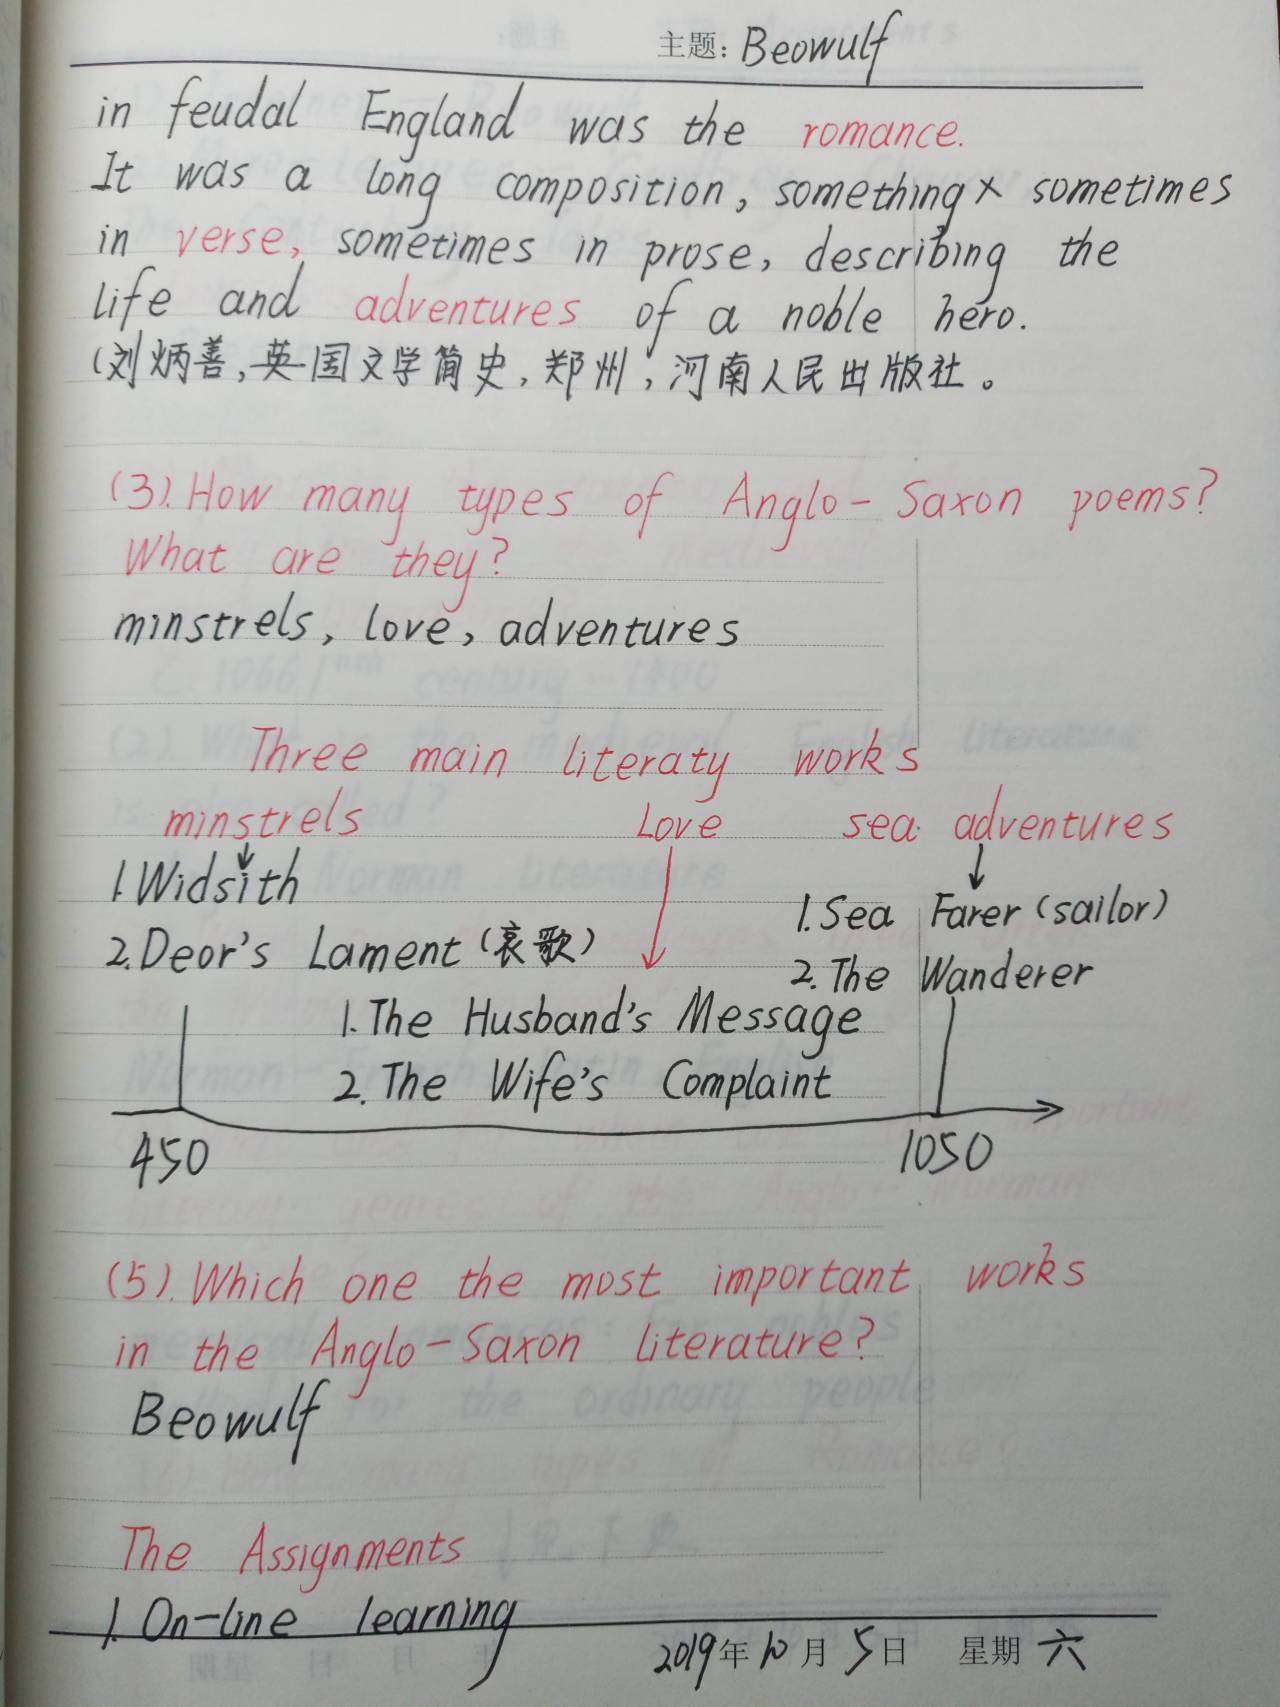 主题: Beowulf
in feudal England was the romance.
It was a long composition, something× sometimes
in verse, sometimes in prose, describing the
life and adventures of a noble hero.
(刘炳善,英国文学简史,郑州,河南人民出版社。
(3). How many types of Anglo-Saxon poems?
What are they?
minstrels, love, adventures
Three main literaty works
minstrels Love sea adventures
1. Widsith
2. Deor's Lament (哀歌)
1. Sea Farer (sailor)
2. The Wanderer
1. The Husband's Message
2. The Wife's Complaint
450 1050
(5). Which one the most important works
in the Anglo-Saxon literature?
Beowulf
The Assignments
1. On-line learning
2019年10月5日 星期六